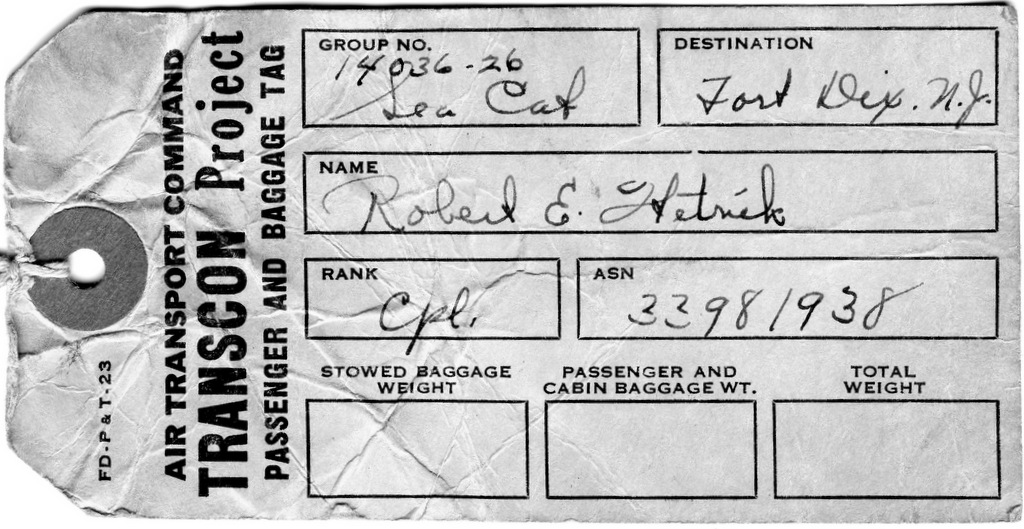 FD-P & T-23
AIR TRANSPORT COMMAND
TRANSCON Project
PASSENGER AND BAGGAGE TAG
GROUP NO.
14036-26
Sea Cat
DESTINATION
Fort Dix. N.J.
NAME
Robert E. Hetrick
RANK
Cpl.
ASN
33981938
STOWED BAGGAGE
WEIGHT
PASSENGER AND
CABIN BAGGAGE WT.
TOTAL
WEIGHT